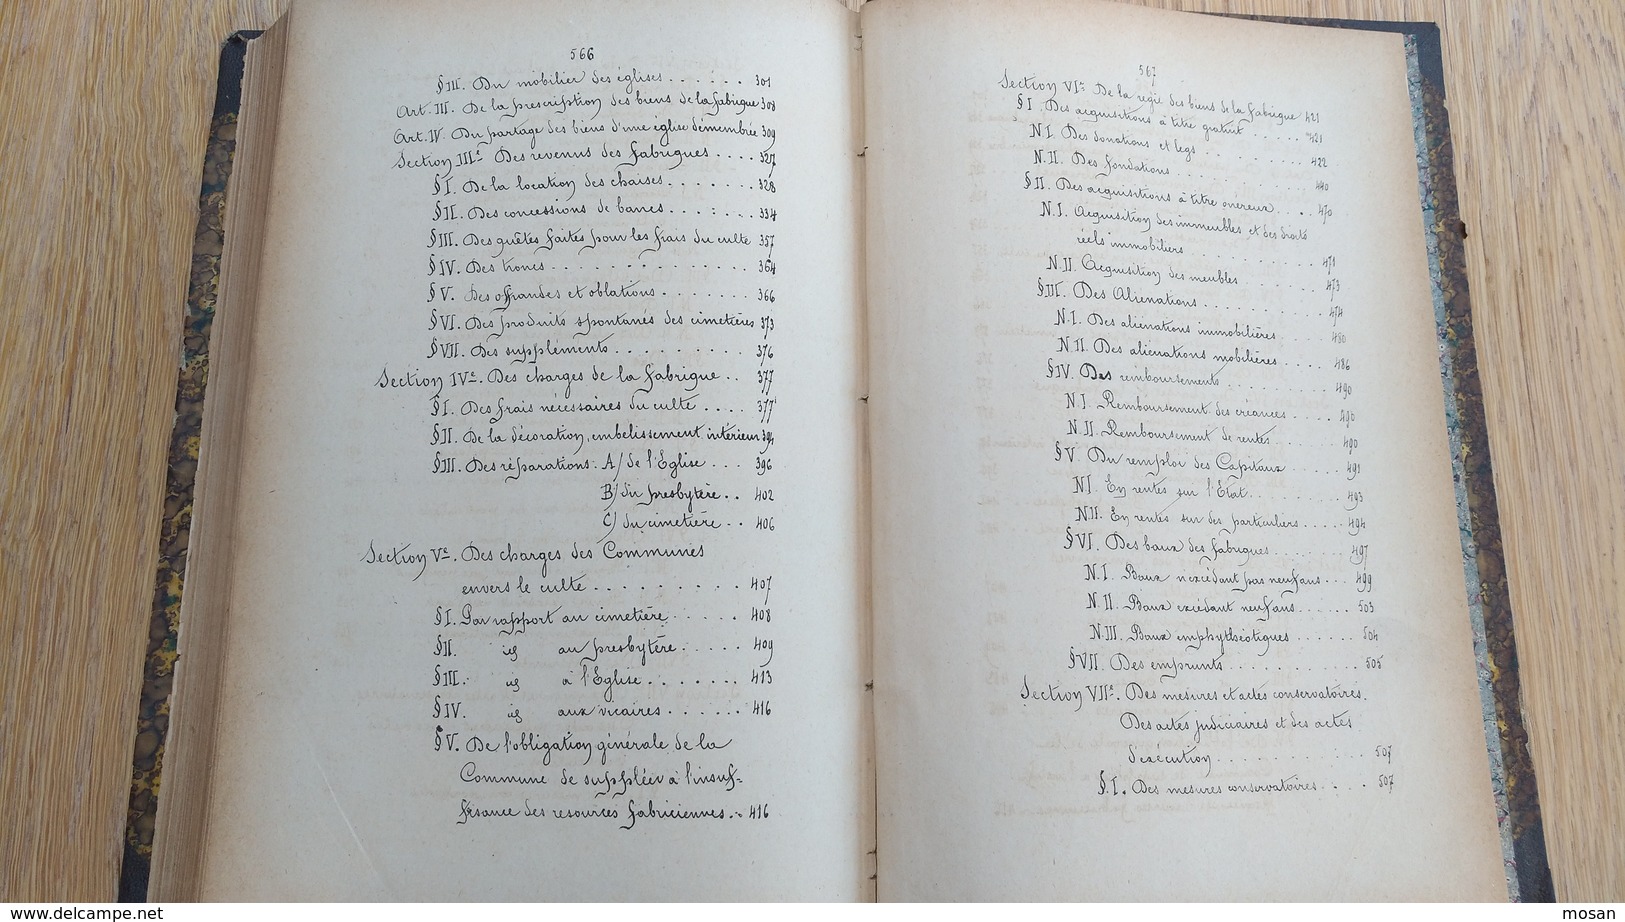 566
§III. Du mobilier des églises . . . . . . 301
Art. III. De la prescription des biens de la fabrique 308
Art. IV. Du partage des biens d'une église démembrée 309
Section IIIe Des revenus des Fabriques . . . . 327
§I. De la location des chaises . . . . . . . 328
§II. Des concessions de bancs . . . : . . . 334
§III. Des quêtes faites pour les frais du culte 357
§IV. Des troncs . . . . . . . . . . . . . . 364
§V. Des offrandes et oblations . . . . . . . 366
§VI. Des produits spontanés des cimetières 373
§VII. Des suppléments . . . . . . . . . 376
Section IVe. Des charges de la Fabrique . . 377
§I. Des frais nécessaires du culte . . . . 377
§II. De la décoration, embelissement intérieur 394
§III. Des réparations. A/ de l'Eglise . . . 396
B/ du presbytère . . 402
C/ du cimetière . . 406
Section Ve. Des charges des Communes
envers le culte . . . . . . . . . 407
§I. Par rapport au cimetière . . . . . 408
§II. id au presbytère . . . . . 409
§III. id à l'Eglise . . . . . . . 413
§IV. id aux vicaires . . . . . . 416
§V. De l'obligation générale de la
Commune de suppléer à l'insuf-
fisance des resources fabriciennes . . 416
567
Section VIe De la régie des biens de la Fabrique 421
§I. Des acquisitions à titre gratuit . . . . . 421
N.I. Des donations et legs . . . . . . . . 422
N.II. Des fondations . . . . . . . . . . . 440
§II. Des acquisitions à titre onéreux . . . . 470
N.I. Acquisition des immeubles et des droits
réels immobiliers . . . . . . . . . . 471
N.II. Acquisition des meubles . . . . . . 473
§III. Des Aliénations . . . . . . . . . . . 474
N.I. Des aliénations immobilières . . . . 480
N.II. Des aliénations mobilières . . . . 486
§IV. Des remboursements . . . . . . . . . 490
N.I. Remboursement des créances . . . . 490
N.II. Remboursement de rentes . . . . . 490
§V. Du remploi des Capitaux . . . . . 491
N.I. En rentes sur l'Etat . . . . . . . . 493
N.II. En rentes sur des particuliers . . . . . 494
§VI. Des baux des fabriques . . . . . . . 497
N.I. Baux n'excédant pas neuf ans . . . 499
N.II. Baux excédant neuf ans . . . . . . 503
N.III. Baux emphythéotiques . . . . . . 504
§VII. Des emprunts . . . . . . . . . . . . 505
Section VIIe. Des mesures et actes conservatoires.
Des actes judiciaires et des actes
d'exécution . . . . . . . . . . . . . 507
§.I. Des mesures conservatoires . . . . 507
www.delcampe.net
mosan